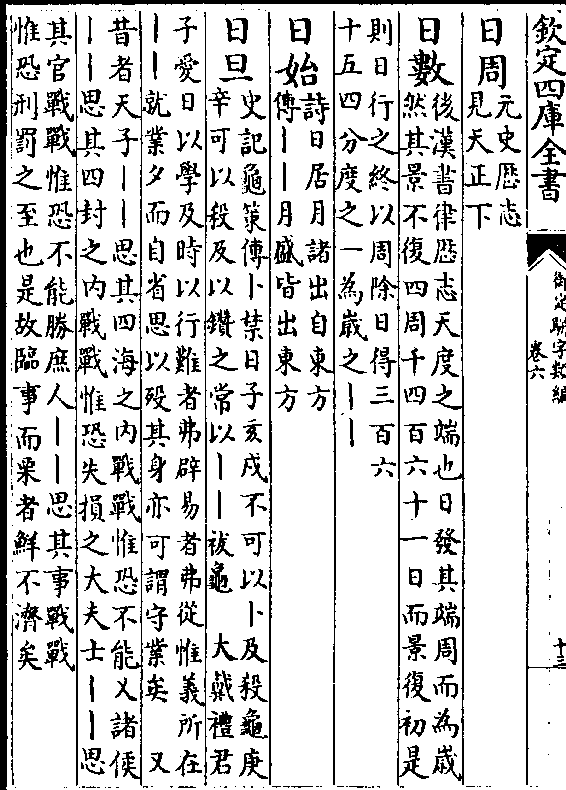 欽定四庫全書
御定駢字類編
卷六
十三
日周
元史歴志
見天正下
日數
後漢書律厯志天度之端也日發其端周而為歲
然其景不復四周千四百六十一日而景復初是
則日行之終以周除日得三百六
十五四分度之一為嵗之丨丨
日始
詩日居月諸出自東方
傳丨丨月盛皆出東方
日旦
史記龜策傳卜禁日子亥戌不可以卜及殺龜庚
辛可以殺及以鑽之常以丨丨祓龜 大戴禮君
子愛日以學及時以行難者弗辟易者弗從惟義所在
丨丨就業夕而自省思以殁其身亦可謂守業矣 又
昔者天子丨丨思其四海之内戰戰惟恐不能乂諸侯
丨丨思其四封之内戰戰惟恐失損之大夫士丨丨思
其官戰戰惟恐不能勝庶人丨丨思其事戰戰
惟恐刑罰之至也是故臨事而栗者鮮不濟矣